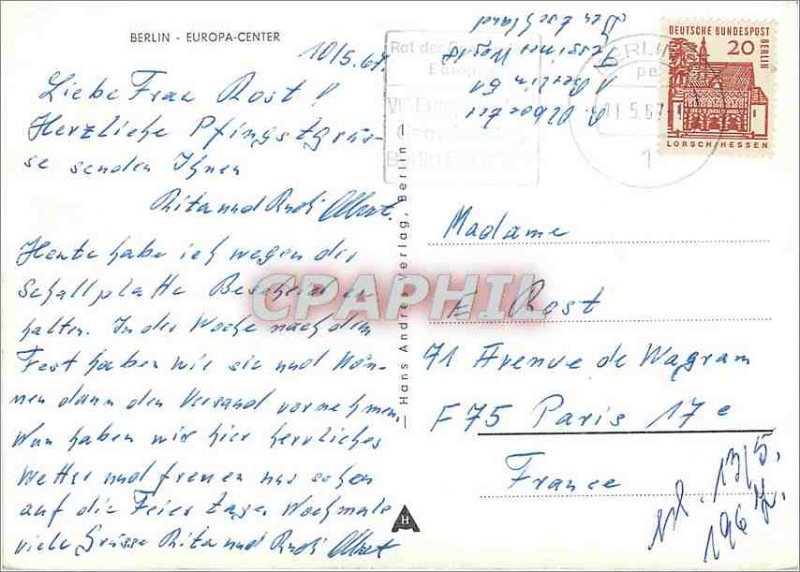 BERLIN - EUROPA-CENTER
10/5.67.
Liebe Frau Rost!
Herzliche Pfingstgrüs-
se senden Ihnen
Rita und Rudi Albert.
Heute habe ich wegen der
Schallplatte Bescheid er
halten. In der Woche nach dem
Fest haben wir sie und kön-
nen dann den Versand vornehmen.
Nun haben wir hier herrliches
Wetter und freuen uns schon
auf die Feiertage. Nochmals
viele Grüsse Rita und Rudi Albert
Hans Andres Verlag, Berlin
H
R. Albert
1 Berlin 61
18
Rat der
Europ
BERLIN
11.5.67
1
DEUTSCHE BUNDESPOST
BERLIN
20
LORSCH/HESSEN
Madame
E Rost
71 Avenue de Wagram
F75 Paris 17e
France
13/5.
1967.
CPAPHIL